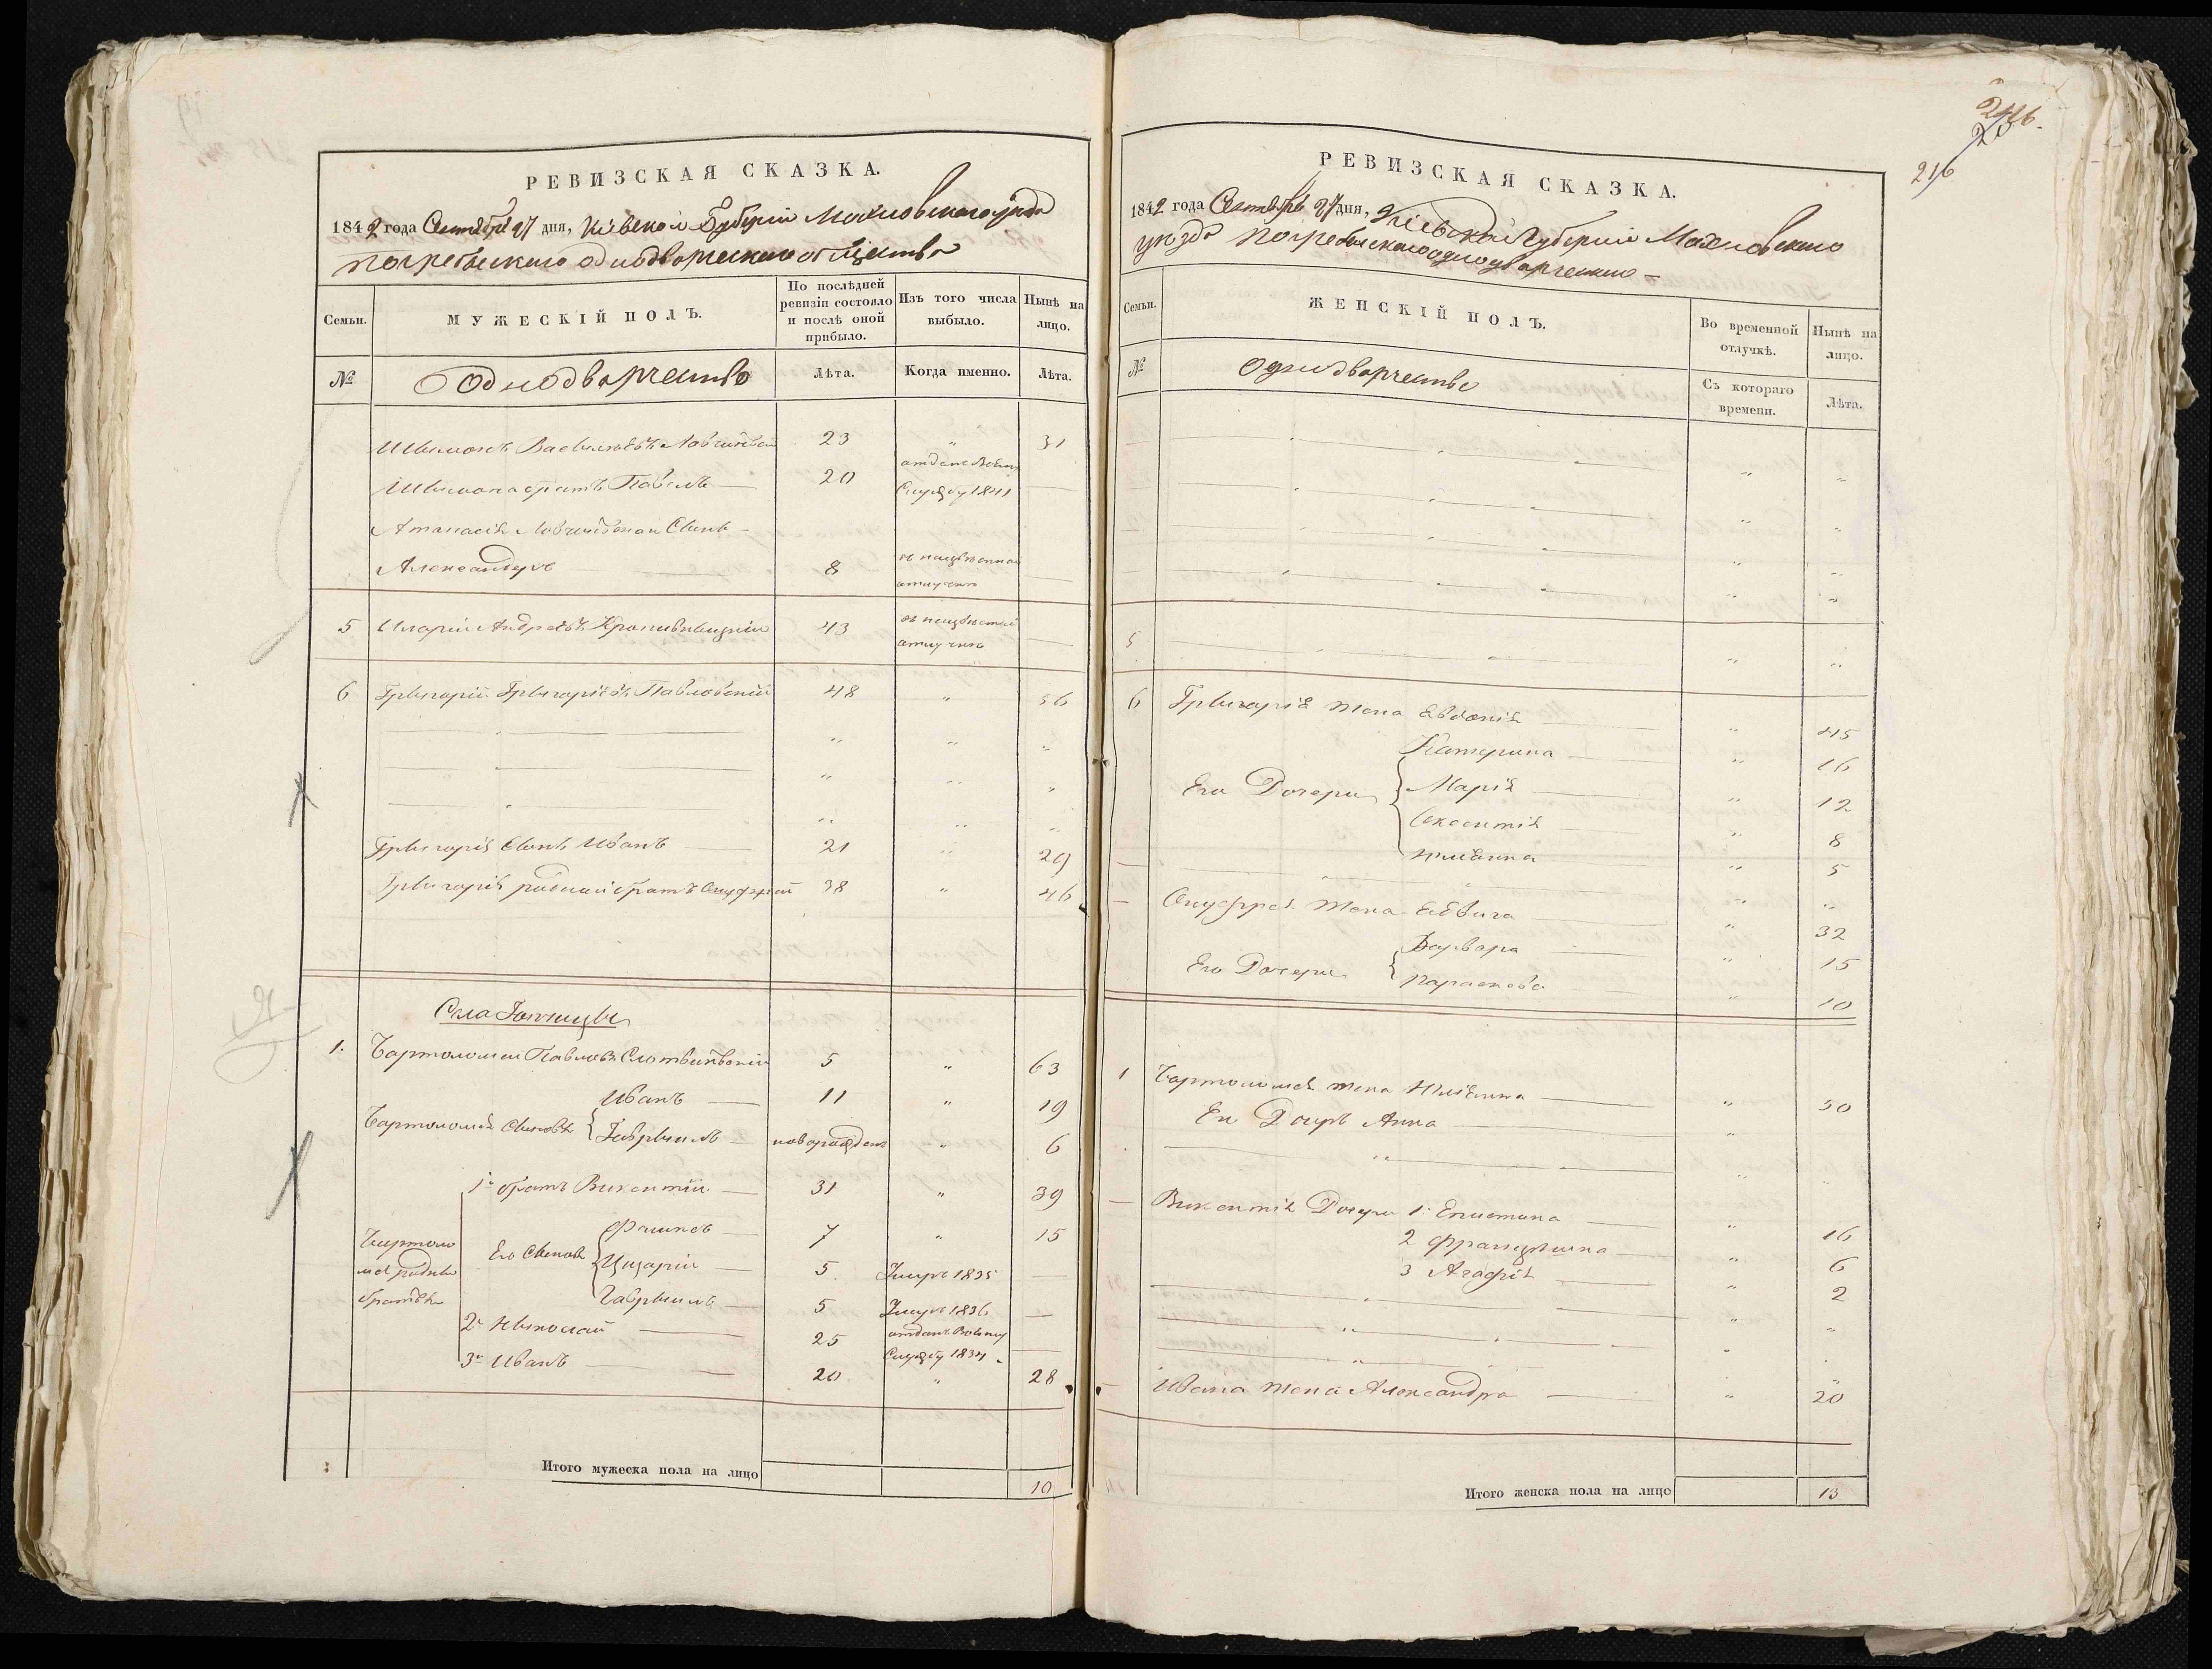 РЕВИЗСКАЯ СКАЗКА.
1842 года Сентября 27 дня, Кіевской Губерніи Махновскаго уезда
Погребыскаго однодворческаго общества
Семьи.
МУЖЕСКІЙ ПОЛЪ.
По послѣдней ревизіи состояло и послѣ оной прибыло.
Изъ того числа выбыло.
Нынѣ на лицо.
№
Однодворчество
Лѣта.
Когда именно.
Лѣта.
Шимонъ Васильевъ 23 " 31
Шимона братъ Павелъ 20 отданъ Военну Службу 1841
Атанасія Сынъ
Александръ 8 въ неизвѣстной отлучкѣ
5 Иларій Андреевъ Кропивницкій 43 въ неизвѣстной отлучкѣ
6 Григорій Григоріевъ Павловскій 48 " 56
Григорія Сынъ Иванъ 21 " 29
Григорія родной братъ Онуфрій 38 " 46
Села
1. Бартоломей Павловъ 5 " 63
Бартоломея Сыновья { Иванъ 11 " 19
Габріилъ новорожденъ " 6
Бартоломея родные братья
1й братъ Викентій 31 " 39
Его Сыновья { 7 " 15
5. Умеръ 1835
Габріилъ 5 Умеръ 1836
2й Николай 25 отданъ Военну Службу 1834
3й Иванъ 20 " 28
Итого мужеска пола на лицо 10
246.
216
РЕВИЗСКАЯ СКАЗКА.
1842 года Сентября 27 дня, Кіевской Губерніи Махновскаго
уезда Погребыскаго однодворческаго
Семьи.
ЖЕНСКІЙ ПОЛЪ.
Во временной отлучкѣ.
Нынѣ на лицо.
№
Однодворчество
Съ котораго времени.
Лѣта.
5
6 Григорія жена Евдокія " 45
Его Дочери { Катерина " 16
Марія " 12
" 8
Юліанна " 5
Онуфрея жена " 32
Его Дочери { Варвара " 15
Параскева " 10
1 Бартоломея жена Юліанна " 50
Ея Дочерь Анна "
Викентія Дочери 1. " 16
2 Францѣшка " 6
3 Агафія " 2
Ивана жена Александра " 20
Итого женска пола на лице 13